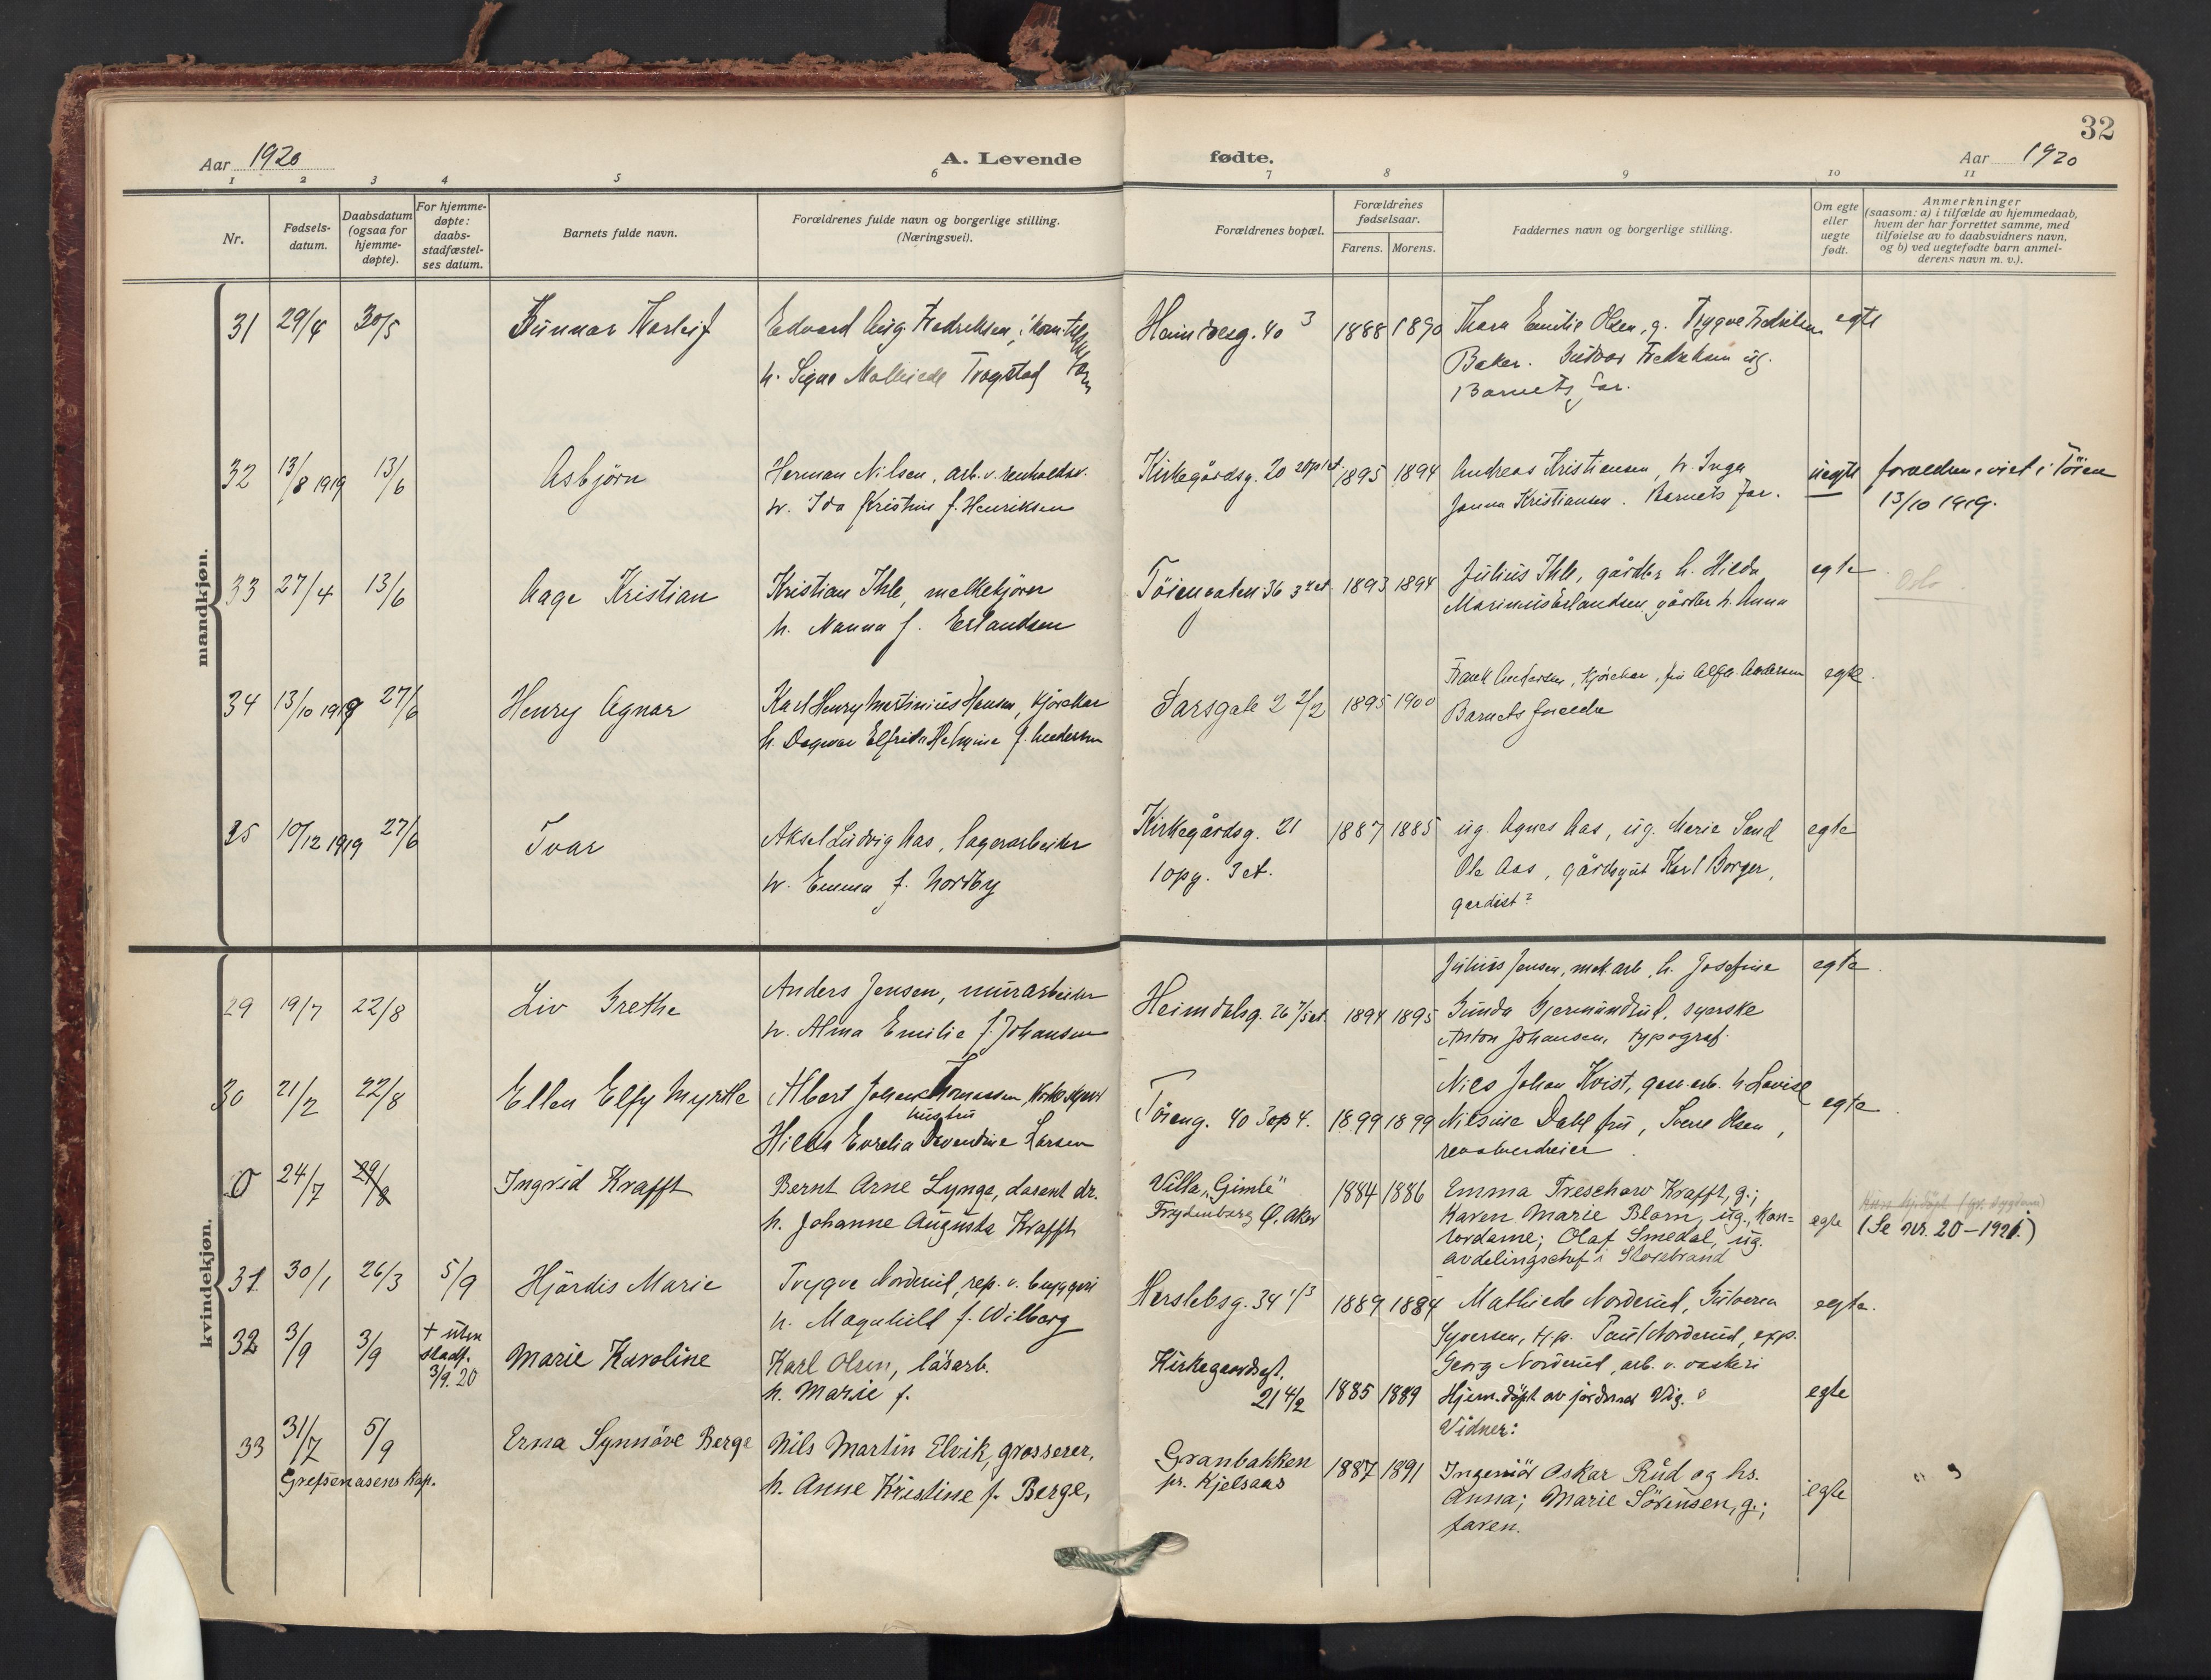 32
Aar 1920
A. Levende
fødte.
Aar 1920
1 2 3 4 5 6 7 8 9 10 11
Nr.
Fødsels-
datum.
Daabsdatum
(ogsaa for
hjemme-
døpte).
For hjemme-
døpte:
daabs-
stadfæstel-
ses datum.
Barnets fulde navn.
Forældrenes fulde navn og borgerlige stilling.
(Næringsvei).
Forældrenes bopæl.
Forældrenes
fødselsaar.
Farens. Morens.
Faddernes navn og borgerlige stilling.
Om egte
eller
uegte
født.
Anmerkninger
(saasom: a) i tilfælde av hjemmedaab,
hvem der har forrettet samme, med
tilføielse av to daabsvidners navn,
og b) ved uegtefødte barn anmel-
derens navn m. v.).
mandkjøn.
31 29/4 30/5
Gunnar
Edvard Aug. Fredriksen,
h. Signe Mathilde Trøgstad
40 3
1888 1890
Thora Emilie Olsen, g. Trygve Fredriksen
Baker. Gudvor Fredriksen ug.
Barnets far.
egte
32 13/8 1919 13/6
Asbjörn
Herman Nilsen, arb. v. renholdsv.
h. Ida Kristine f. Henriksen
Kirkegårdsg. 20
1895 1894
Andreas Kristiansen, h. Inga
Janna Kristiansen. Barnets far.
uegte
forældrene viet i Töien
13/10 1919.
33 27/4 13/6
Aage Kristian
Kristian Ihle, melkekjörer
h. Nanna f. Erlandsen
Töiengaten 36 3 et.
1893 1894
Julius Ihle, gårdbr. h. Hilda
Marinius Erlandsen gårdbr h. Anna
egte
Oslo
34 13/10 1919 27/6
Henry Agnar
Karl Henry Martinius Hansen, kjörekar
h. Dagmar Elfrida f. Andersen
Sarsgate 2 2/2
1895 1900
Frank Andersen, kjörekar, fru Alfh. Andersen
Barnets forældre
egte.
35 10/12 1919 27/6
Ivar
Aksel Ludvig Aas, lagerarbeider
h. Emma f. Nordby
Kirkegårdsg. 21
1 opg. 3 et.
1887 1885
ug. Agnes Aas, ug. Marie Sand
Ole Aas, gårdsgut Karl Borger,
gardist?
egte
kvindekjøn.
29 19/7 22/8
Liv Grethe
Anders Jensen, murarbeider
h. Alma Emilie f. Johansen
Heimdalsg. 26
1894 1895
Julius Jensen, mek. arb. h. Josefine
Gunda Gjermundrud, syerske
Anton Johansen, typograf.
egte.
30 21/2 22/8
Ellen Elfy Myrtle
Albert Johan Thomassen
hustru
Hilda Larsen
Töieng. 40 3 op 4.
1899 1899
Nils Johan Kvist, h. Lovise
Nilsine Dahl fru, Sverre Olsen,
revolverdreier.
egte.
0 24/7 29/8
Ingrid Krafft
Bernt Arne Lynge, dosent dr.
h. Johanne Augusta Krafft,
Villa „Gimle"
Frydenberg Ø. Aker
1884 1886
Emma Treschow Krafft, g.;
Karen Marie Blom, ug., kon=
tordame; Olaf Smedal, ug.
avdelingschef i Storebrand
egte
(Se nr. 20 – 1921.)
31 30/1 26/3 5/9
Hjördis Marie
Trygve Norderud, rep. v. bryggeri
h. Magnhild f. Wilberg
Herslebsg. 34 1/3
1889 1884
Mathilde Norderud,
Syversen, Paul Norderud, exp.
Georg Norderud, arb. v. vaskeri
egte.
32 3/9 3/9
+ uten
stadf.
3/9. 20
Marie Karoline
Karl Olsen, lösarb.
h. Marie f.
Kirkegaardsgt.
21 4/2
1885 1889
Hjem.döpt av jordmor Vig.
Vidner:
egte
33 31/7 5/9
Grefsenasens Kap.
Erna Synnöve Berge
Nils Martin Elvik, grosserer,
h. Anne Kristine f. Berge,
Granbakken
pr. Kjelsaas
1887 1891
Ingeniör Oskar Rud og hs.
Anna; Marie Sörensen, g.;
faren.
egte